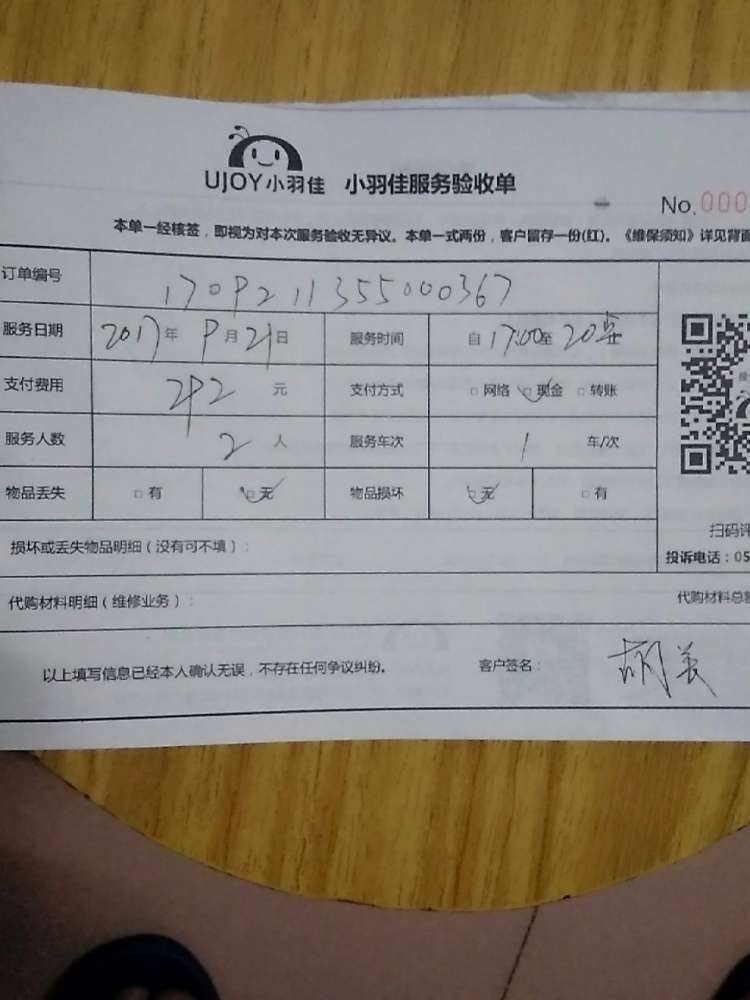 UJOY小羽佳 小羽佳服务验收单
No.000
本单一经核签，即视为对本次服务验收无异议。本单一式两份，客户留存一份(红)。《维保须知》详见背面
订单编号 1709211355000367
服务日期 2017年9月21日 服务时间 自17:00至20:
支付费用 292元 支付方式 □网络 □现金 □转账
服务人数 2人 服务车次 1 车/次
物品丢失 □有 □无 物品损坏 □无 □有
损坏或丢失物品明细（没有可不填）：
扫码评
投诉电话：05
代购材料明细（维修业务）：
代购材料总额
以上填写信息已经本人确认无误，不存在任何争议纠纷。 客户签名： 胡美